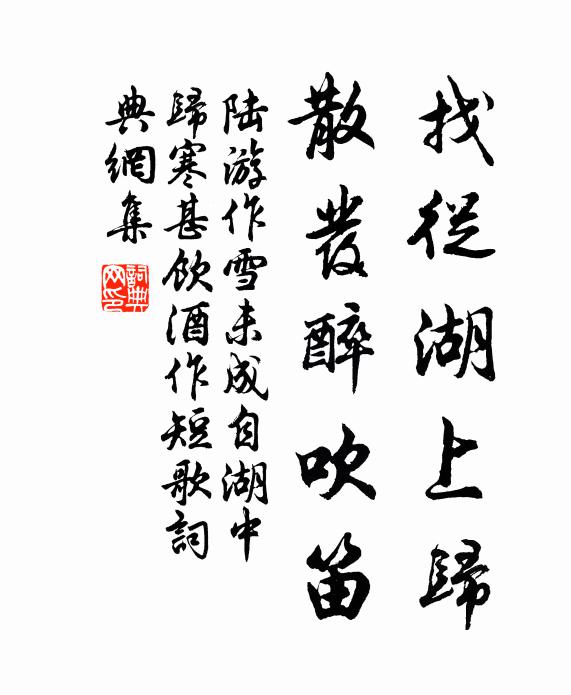 我從湖上歸
散發醉吹笛
陸游作雪未成自湖中
歸寒甚飲酒作短歌詞
典網集
詞典
网印